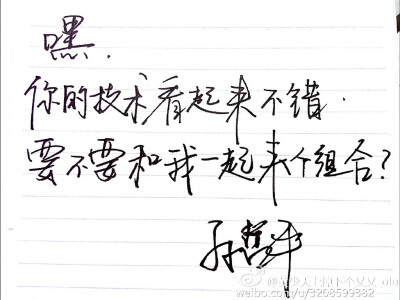 嘿.
你的技术看起来不错.
要不要和我一起来个组合?
孙哲平
weibo.com/u/3208599382